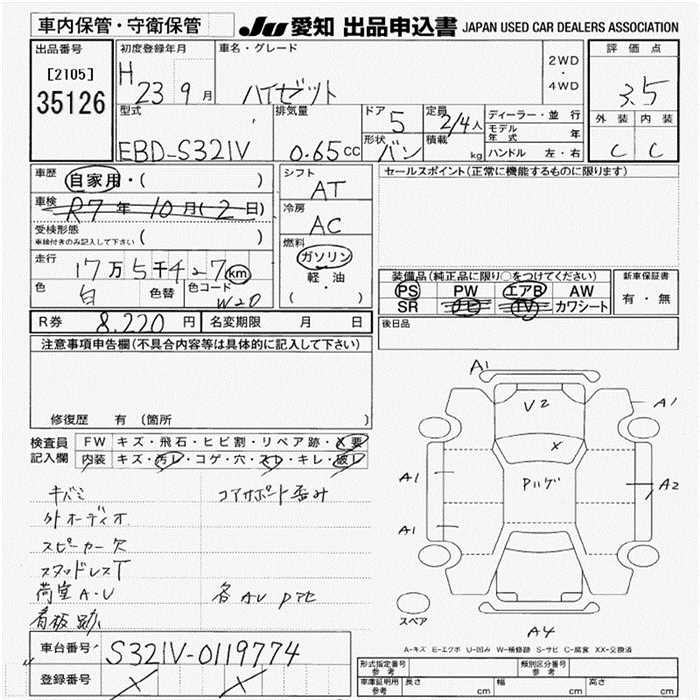 車内保管・守衛保管
JU 愛知 出品申込書 JAPAN USED CAR DEALERS ASSOCIATION
出品番号
[2105]
35126
初度登録年月
H 23 9 月
車名・グレード
ハイゼット
2WD
・
4WD
評価点
3.5
外装 内装
C C
型式
EBD-S321V
排気量
0.65 CC
ドア
5
形状
バン
定員
2/4人
積載
kg
ディーラー・並行
モデル年式 年
ハンドル 左・右
車歴 自家用・( )
車検 R7年10月(2日)
受検形態
車検付きのみ記入して下さい ( )
走行 17万5千427km
色 白 色替 色コード W20
シフト
AT
冷房
AC
燃料
ガソリン
軽・油
( ・ )
セールスポイント(正常に機能するものに限ります)
装備品(純正品に限り○をつけてください)
PS PW エアB AW
SR ナビ TV カワシート
新車保証書
有・無
後日品
R券 8,220 円 名変期限 月 日
注意事項申告欄(不具合内容等は具体的に記入して下さい)
修復歴 有 (箇所 )
検査員
記入欄
FW キズ・飛石・ヒビ割・リペア跡・X要
内装 キズ・汚レ・コゲ・穴・スレ・キレ・破レ
キバミ
コアサポート歪み
外オーディオ
スピーカー欠
スタッドレスT
荷室A・U
各AU Pアセ
看板跡
A1
V2
A1
X
Pハゲ
A1
A2
A1
スペア
A4
A-キズ E-エクボ U-凹み W-補修跡 S-サビ C-腐食 XX-交換済
車台番号 S321V-0119774
登録番号
形式指定番号 参考
類別区分番号 参考
車庫証明用 参考 長さ cm 幅 cm 高さ cm